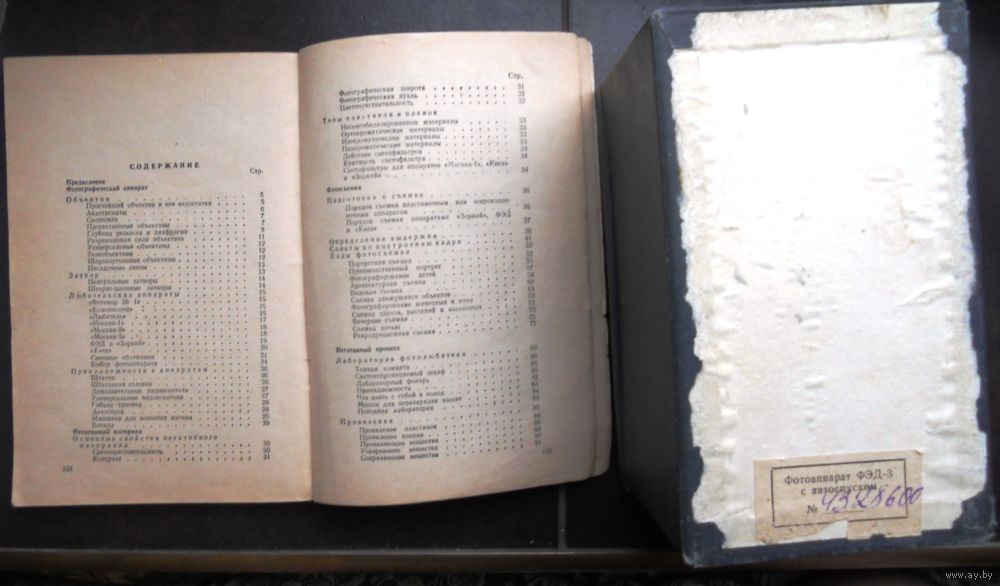 СОДЕРЖАНИЕ
Стр.
Предисловие
Фотографический аппарат
Объектив 5
Простейший объектив и его недостатки 5
Анастигматы 6
Светосила 7
Просветленные объективы 7
Глубина резкости и диафрагма 9
Разрешающая сила объектива 11
Универсальные объективы 12
Телеобъективы 12
Широкоугольные объективы 12
Насадочные линзы 13
Затвор 13
Центральные затворы 14
Шторно-щелевые затворы 14
Любительские аппараты 15
«Фотокор № 1» 15
«Комсомолец» 15
«Любитель» 16
«Москва-1» 17
«Москва-2» 18
«Москва-3» 18
ФЭД и «Зоркий» 19
«Киев» 20
Сменные объективы 21
Выбор фотоаппарата 24
Принадлежности к аппаратам 26
Штатив 26
Штативная головка 26
Дополнительные видоискатели 27
Универсальные видоискатели 27
Гибкие тросики 28
Автоспуск 28
Бленда 29
Негативный материал
Основные свойства негативного
материала 30
Светочувствительность 30
Контраст 31
158
Стр.
Фотографическая широта 31
Фотографическая вуаль 32
Цветочувствительность 32
Типы пластинок и пленок
Несенсибилизированные материалы 33
Ортохроматические материалы 33
Изохроматические материалы 33
Панхроматические материалы 33
Действие светофильтров 33
Кратность светофильтра 34
Светофильтры для аппаратов «Москва-1», «Киев»
и «Зоркий» 34
Фотосъемка
Подготовка к съемке 36
Порядок съемки пластиночным или широкопле-
ночным аппаратом 36
Порядок съемки аппаратами «Зоркий», ФЭД
и «Киев» 37
Определение выдержки 38
Советы по построению кадра 41
Виды фотосъемки 52
Портретная съемка 52
Производственный портрет 55
Фотографирование детей 57
Архитектурная съемка 58
Видовая съемка 60
Съемка движущихся объектов 64
Фотографирование животных и птиц
Съемка цветов, растений и насекомых
Вечерние съемки 75
Съемка ночью
Репродукционная съемка 77
Негативный процесс
Лаборатория фотолюбителя
Темная комната
Светонепроницаемый шкаф
Лабораторный фонарь
Принадлежности
Что взять с собой в поход
Мешок для перезарядки кассет
Походная лаборатория
Проявление
Проявление пластинок
Проявление пленки
Проявляющие вещества
Ускоряющие вещества
Сохраняющие вещества
159
Фотоаппарат ФЭД-3
с автоспуском
№ 4328600
www.ay.by